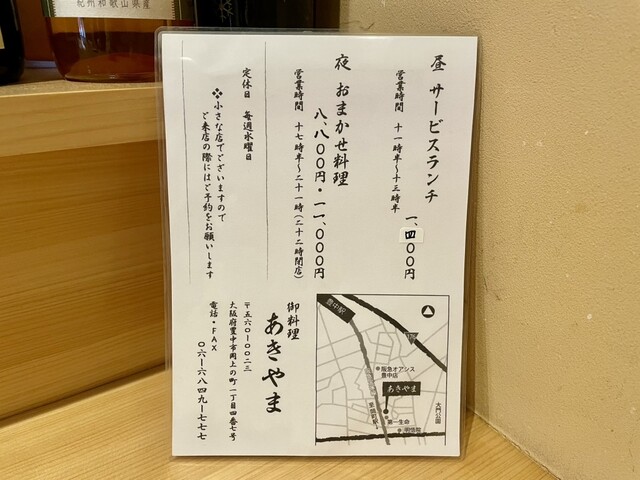 紀州和歌山県産
昼 サービスランチ
一、四〇〇円
営業時間 十一時半～十三時半
夜 おまかせ料理
八、八〇〇円・一一、〇〇〇円
営業時間 十七時半～二十一時(二十二時閉店)
定休日 毎週水曜日
❖小さな店でございますので
ご来店の際にはご予約をお願いします
豊中駅
阪急オアシス
豊中店
あきやま
第一生命
大門公園
御料理
あきやま
〒五六〇-〇〇二三
大阪府豊中市岡上の町一丁目四番七号
電話・FAX
〇六-六八四九-七七七